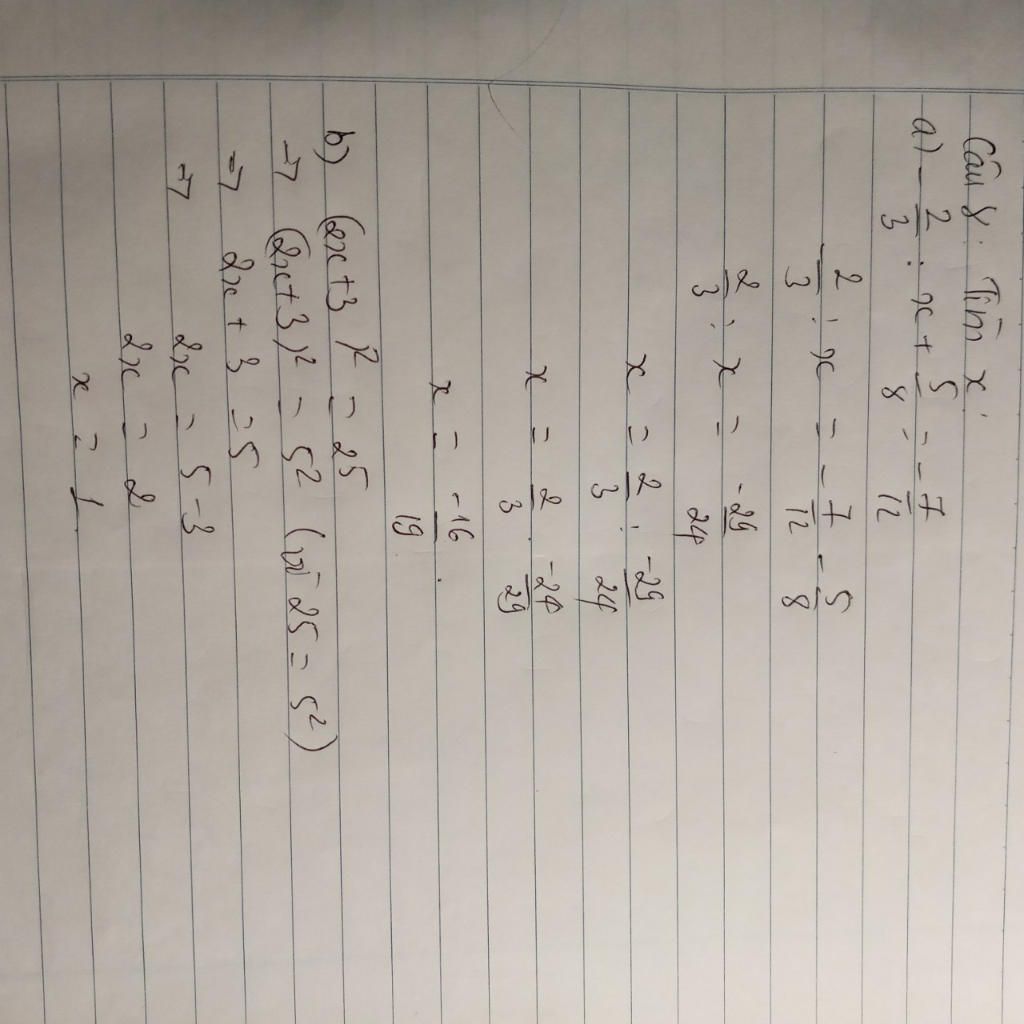 Câu 8: Tìm x:
a) - 2/3 : x + 5/8 = - 7/12
2/3 : x = - 7/12 - 5/8
2/3 : x = -29/24
x = 2/3 : -29/24
x = 2/3 . -24/29
x = -16/19 .
b) (2x+3)² = 25
→ (2x+3)² = 5² (vì 25 = 5²)
→ 2x + 3 = 5
→ 2x = 5 - 3
2x = 2
x = 1.